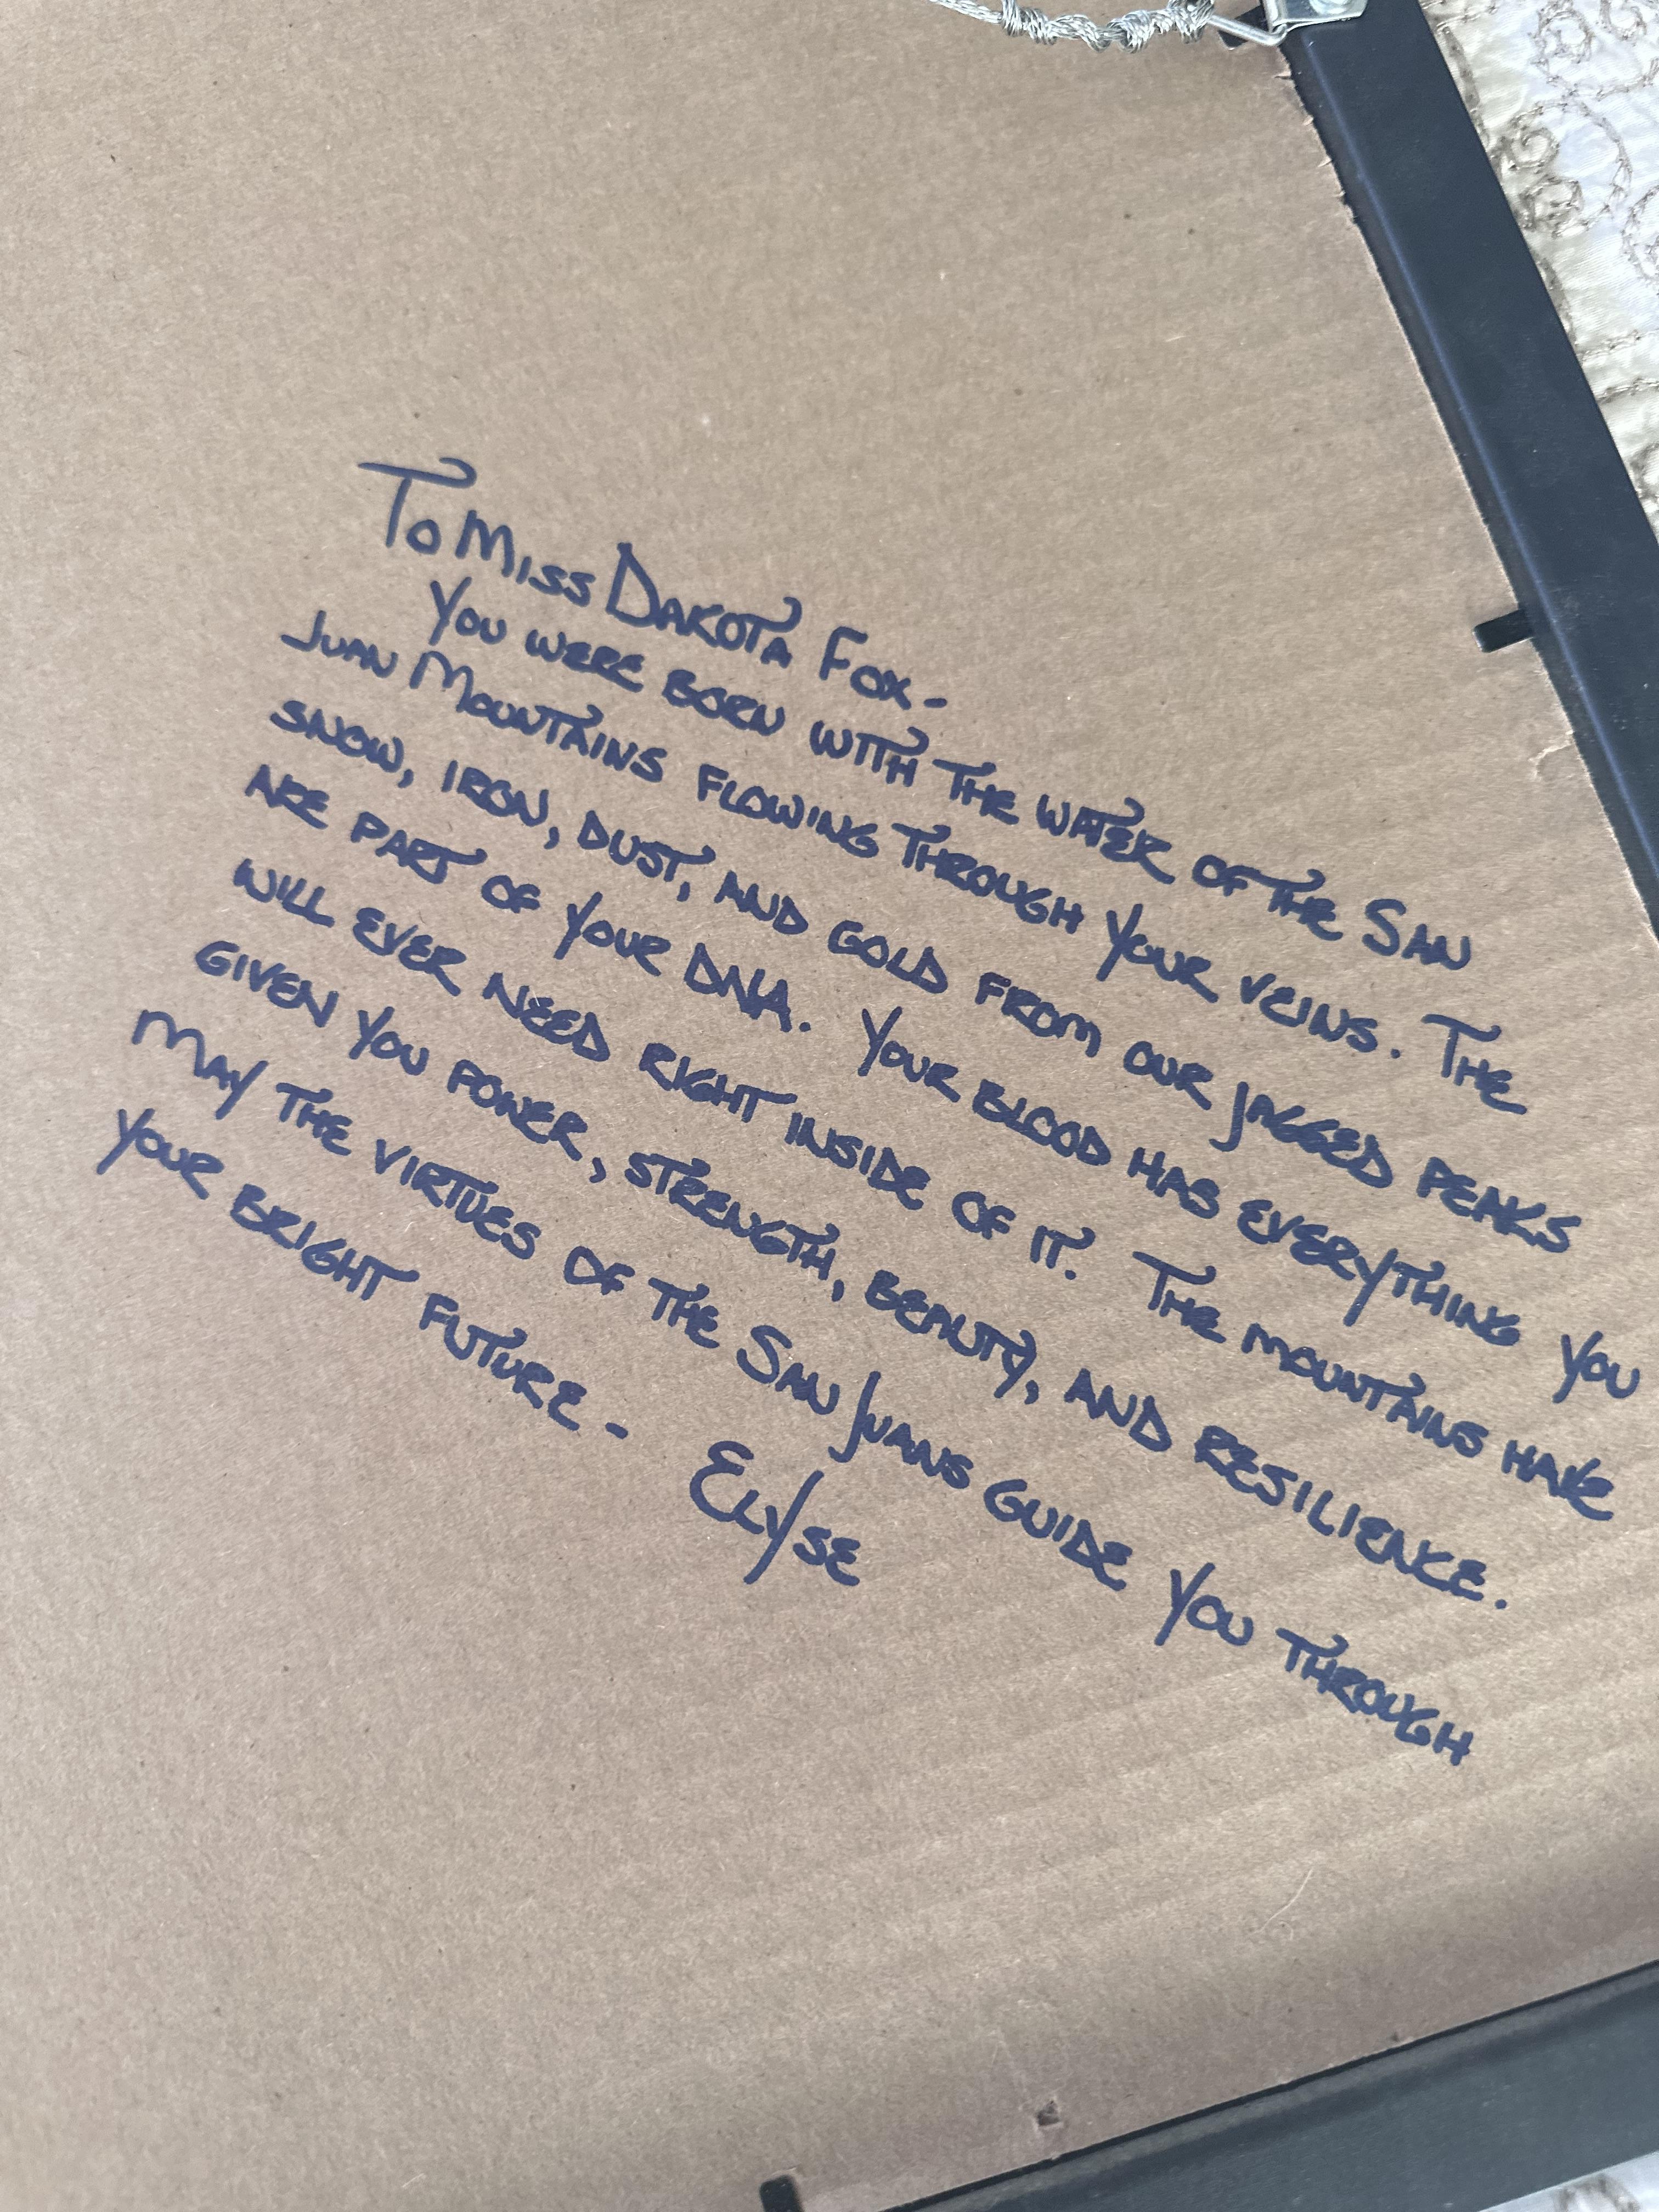 To Miss Dakota Fox -
You were born with the water of the San
Juan Mountains flowing through your veins. The
snow, iron, dust, and gold from our jagged peaks
are part of your DNA. Your blood has everything you
will ever need right inside of it. The mountains have
given you power, strength, beauty, and resilience.
May the virtues of the San Juans guide you through
your bright future - Elyse